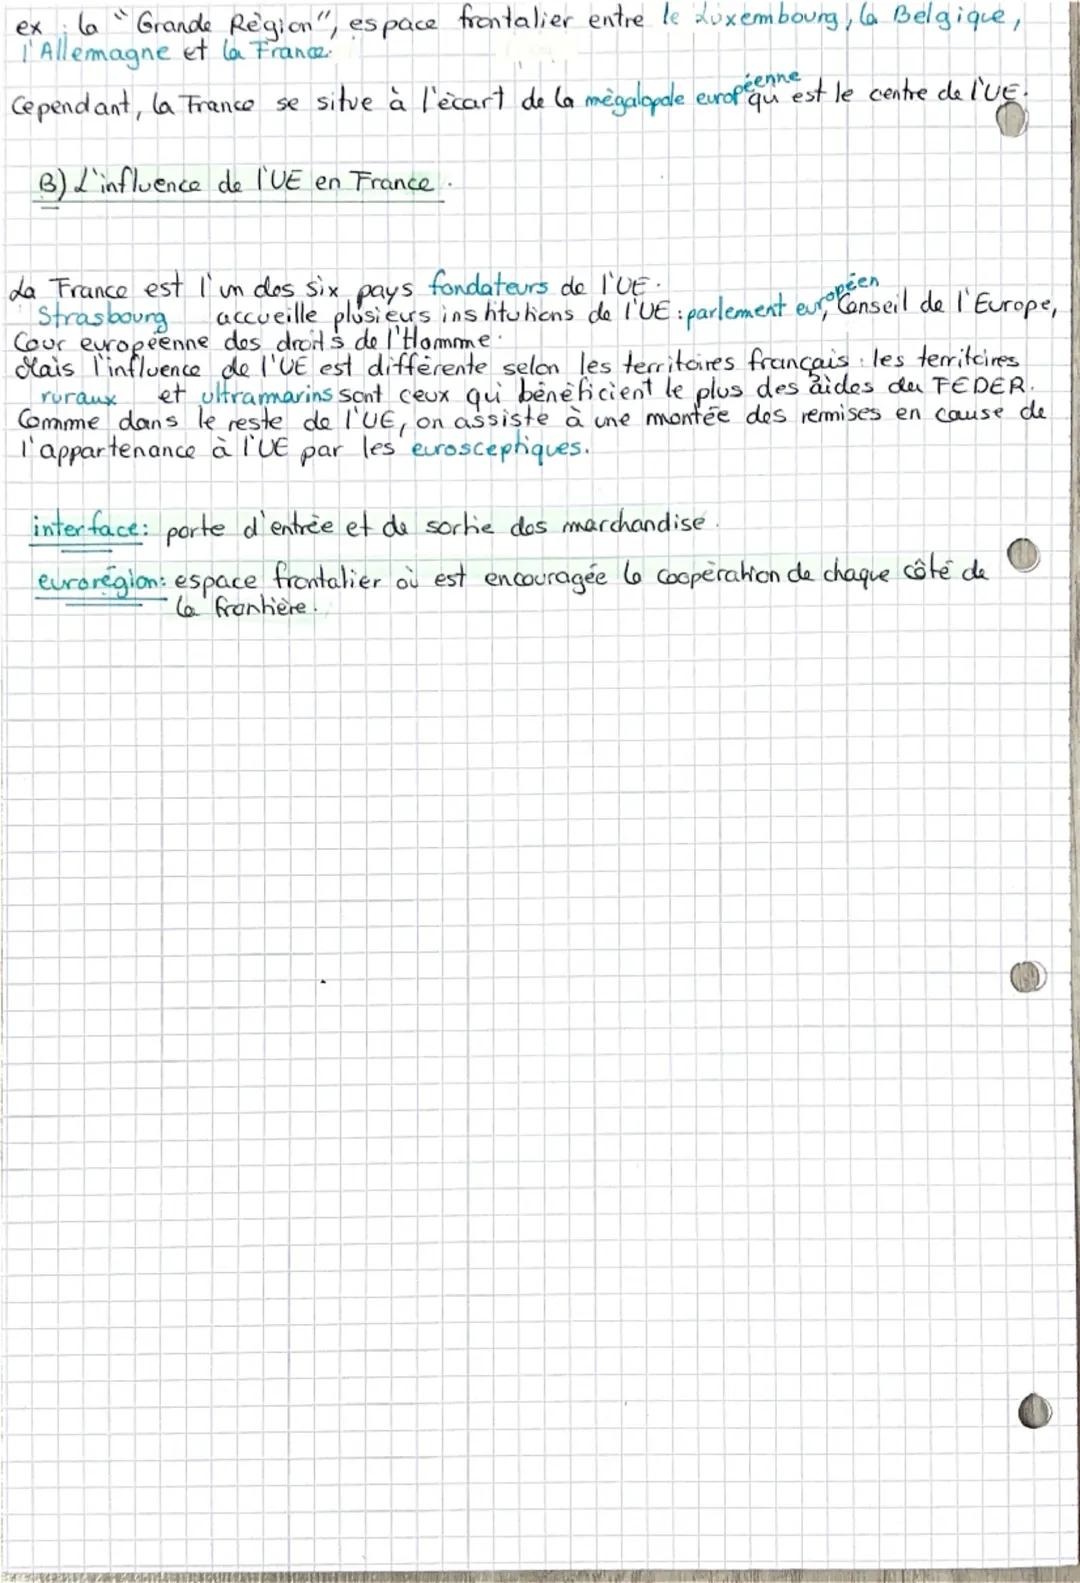 ex : la "Grande Région", espace frontalier entre le Luxembourg, la Belgique,
l'Allemagne et la France.
Cependant, la France se situe à l'écart de la mégalopole européenne qui est le centre de l'UE.
B) L'influence de l'UE en France.
La France est l'un des six pays fondateurs de l'UE.
Strasbourg accueille plusieurs institutions de l'UE : parlement européen, Conseil de l'Europe,
Cour européenne des droits de l'Homme.
Mais l'influence de l'UE est différente selon les territoires français : les territoires
ruraux et ultramarins sont ceux qui bénéficient le plus des aides du FEDER.
Comme dans le reste de l'UE, on assiste à une montée des remises en cause de
l'appartenance à l'UE par les eurosceptiques.
interface: porte d'entrée et de sortie des marchandise.
eurorégion: espace frontalier où est encouragée la coopération de chaque côté de
la frontière.